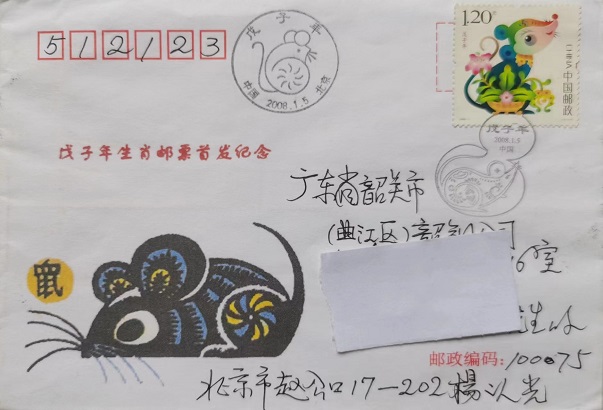 512123
戊子年
中国 2008.1.5 北京
1.20元
中国邮政
戊子年
2008.1.5
中国
戊子年生肖邮票首发纪念
广东省韶关市
(曲江区)韶
室
鼠
邮政编码:100075
北京市赵公口17-202 楊